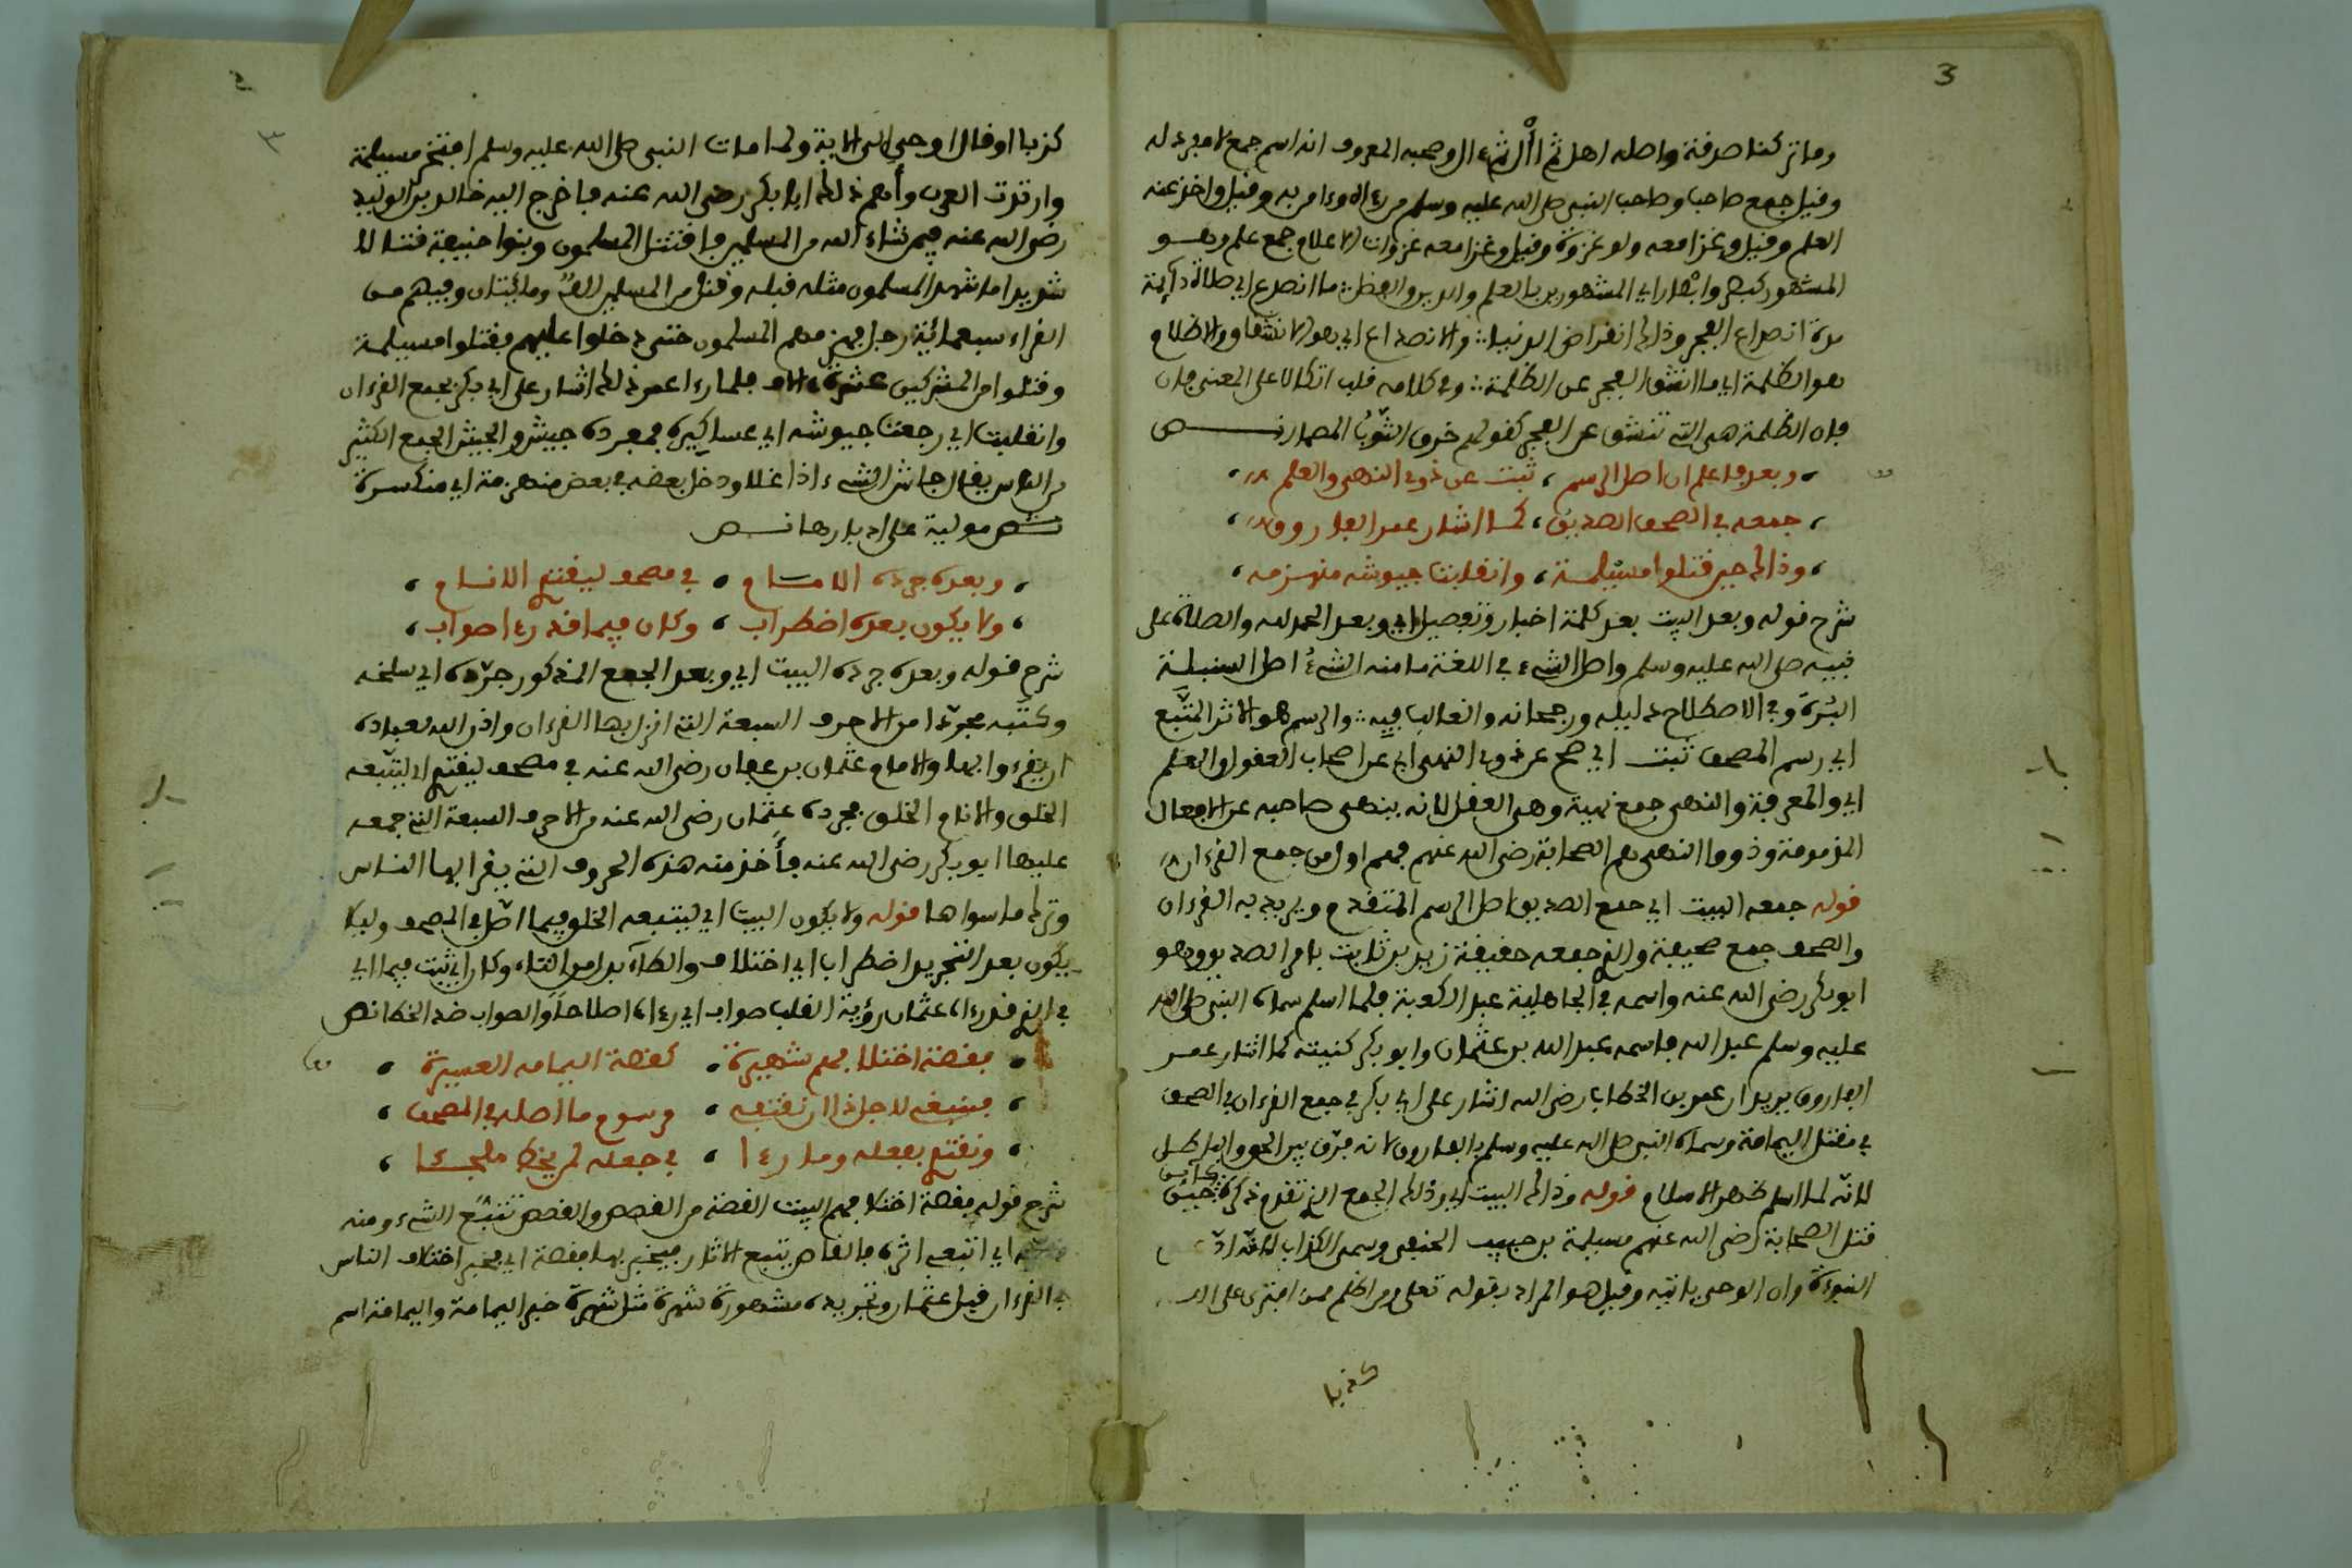 3
وما تركنا صدقة واصله اهل ثم أأل ثم ءال وصحبه المعروف انه اسم جمع لا مفرد له
وقيل جمع صاحب وصاحب النبي صلى الله عليه وسلم من رءاه وءامن به وقيل واخذ عنه
العلم وقيل وغزا معه ولو غزوة وقيل وغزا معه غزوات الاعلام جمع علم وهو
المشهور كبطر وابطار اي المشهورين بالعلم والدين والفضل ما انصدع اي صلاة دائمة
مدة انصداع الفجر وذالك انقراض الدنيا والانصداع اي هو الانشقاق والاظلام
هو الظلمة اي ما انشق الفجر عن الظلمة وفي كلامه قلب اتكالا على المعنى فان
فان الظلمة هي التي تنشق عن الفجر كقولهم خرق الثوب المسمار نص
وبعد فاعلم ان اصل الرسم، ثبت عن ذوي النهى والعلم
جمعه في الصحف الصديق، كما اشار عمر الفاروق
وذالك حين قتلوا مسيلمة، وانقلبت جيوشه منهزمه
شرح قوله وبعد البيت بعد كلمة اخبار وتفصيل اي وبعد الحمد لله والصلاة على
نبيه صلى الله عليه وسلم واصل الشيء في اللغة ما منه الشيء اصل السنبلة
البزرة وفي الاصطلاح دليله ورجحانه والغالب فيه والرسم هو الاثر المتبع
اي رسم المصحف ثبت اي صح عن ذوي النهى اي عن اصحاب العقول والعلم
اي والمعرفة والنهى جمع نهية وهي العقل لانه ينهى صاحبه عن الافعال
المذمومة وذووا النهى هم الصحابة رضي الله عنهم فهم اول من جمع القرءان
قوله جمعه البيت اي جمع الصديق اصل الرسم المتقدم ويريد به القرءان
والصحف جمع صحيفة والذي جمعه حقيقة زيد بن ثابت بامر الصديق وهو
ابو بكر رضي الله عنه واسمه في الجاهلية عبد الكعبة فلما اسلم سماه النبي صلى الله
عليه وسلم عبد الله فاسمه عبد الله بن عثمان وابو بكر كنيته كما اشار عمر
الفاروق يريد ان عمر بن الخطاب رضي الله اشار على ابي بكر في جمع القرءان في الصحف
في مقتل اليمامة وسماه النبي صلى الله عليه وسلم بالفاروق لانه فرق بين الحق والباطل
لانه لما اسلم ظهر الاسلام قوله وذالك البيت اي وذلك الجمع الذي تقدم ذكره كاين حين
قتل الصحابة رضي الله عنهم مسيلمة بن حبيب الحنفي وسمي الكذاب لانه ادعى
النبوءة وان الوحي ياتيه وقيل هو المراد بقوله تعلى ومن اظلم ممن افترى على الله
كذبا
٣
كذبا او قال اوحي الي الاية ولما مات النبي صلى الله عليه وسلم افتخر مسيلمة
وارتدت العرب وأهم ذلك ابا بكر رضي الله عنه فاخرج اليه خالد بن الوليد
رضي الله عنه فيمن شاء الله من المسلمين فاقتتل المسلمون وبنوا حنيفة قتالا
شديدا ما شهد المسلمون مثله قبله وقتل من المسلمين الف ومائتان وفيهم من
القراء سبعمائة رجل فهزم المسلمون حتى دخلوا عليهم فقتلوا مسيلمة
وقتلوا من المشركين عشرة ءالاف فلما رءا عمر ذلك اشار على ابي بكر بجمع القرءان
وانقلبت اي رجعت جيوشه اي عساكره فمفرده جيش والجيش الجمع الكثير
من الناس يقال جاش الشيء اذا غلا ودخل بعضه في بعض منهزمة اي منكسرة
مولية على ادبارها نص
وبعده جرده الامام • في مصحف ليقتدي الانام
ولا يكون بعده اضطراب • وكان فيما قد رءا صواب
شرح قوله وبعده جرده البيت اي وبعد الجمع المذكور جرده اي سلخه
وكتبه مجردا من الاحرف السبعة التي انزل بها القرءان واذن الله لعباده
ان يقرءوا بها والامام عثمان بن عفان رضي الله عنه في مصحف ليقتدي اي ليتبعه
الخلق والانام الخلق فجرده عثمان رضي الله عنه من الاحرف السبعة التي جمعه
عليها ابو بكر رضي الله عنه فأخذ منه هذه الحروف التي يقرا بها الناس
وترك ما سواها قوله ولا يكون البيت اي ليتبعه الخلق فيما اصل في المصحف وليلا
يكون بعد التجريد اضطراب اي اختلاف والطاء بدل من التاء وكان اي ثبت فيما اي
في الذي قد رءاه عثمان رؤية القلب صواب اي رءاه اصلاحا والصواب ضد الخطا نص
فقصة اختلافهم شهيرة • كقصة اليمامة العسيرة
فينبغي لاجل ذا ان نقتفي • مرسوم ما اصله في المصحف
ونقتدي بفعله وما رءا • في جعله لمن يخط ملجئا
شرح قوله فقصة اختلافهم البيت القصة من القصص والقصص تتبع الشيء ومنه
اي اتبعي اثره فالقاص يتتبع الاثار فيخبر بها فقصة اي فخبر اختلاف الناس
في القرءان قبل عثمان وتجريده مشهورة شهرة مثل شهرة خبر اليمامة واليمامة اسم